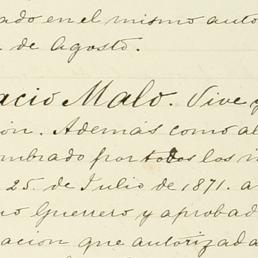 ado en el mismo auto
. de Agosto.
acio Malo. Vive y
ión. Además como al
ombrado por todos los
25. de Julio de 1871. a
no Guerrero y aprobad
acion que autorizada